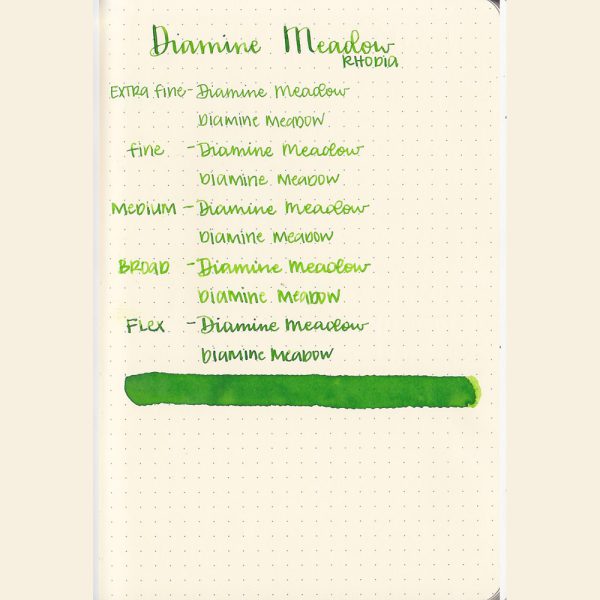 Diamine Meadow
RHODIA
Extra fine - Diamine Meadow
Diamine Meadow
fine - Diamine Meadow
Diamine Meadow
Medium - Diamine Meadow
Diamine Meadow
Broad - Diamine Meadow
Diamine Meadow
Flex - Diamine Meadow
Diamine Meadow